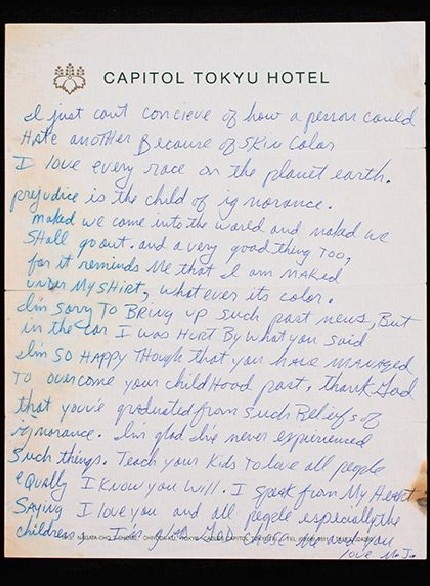 CAPITOL TOKYU HOTEL
I just cant concieve of how a person could
Hate another Because of Skin Color
I love every race on the planet earth.
prejudice is the child of ignorance.
naked we come into the world and naked we
Shall go out. and a very good thing TOO,
for it reminds Me that I am NAKED
under MySHirt, whatever its color.
I'm Sorry To BRing up such past news, But
in the car I was HuRT By what you said
I'm SO HAPPy THough that you HAVE MANAGED
TO overcome your childHood past. thank God
that you've graduated from such Beliefs of
ignorance. I'm glad I've never experienced
Such things. Teach your Kids To love all people
equally I know you will. I speak from My Heart
Saying I love you and all people especially the
children I'm glad God chose me and you
love M.J.